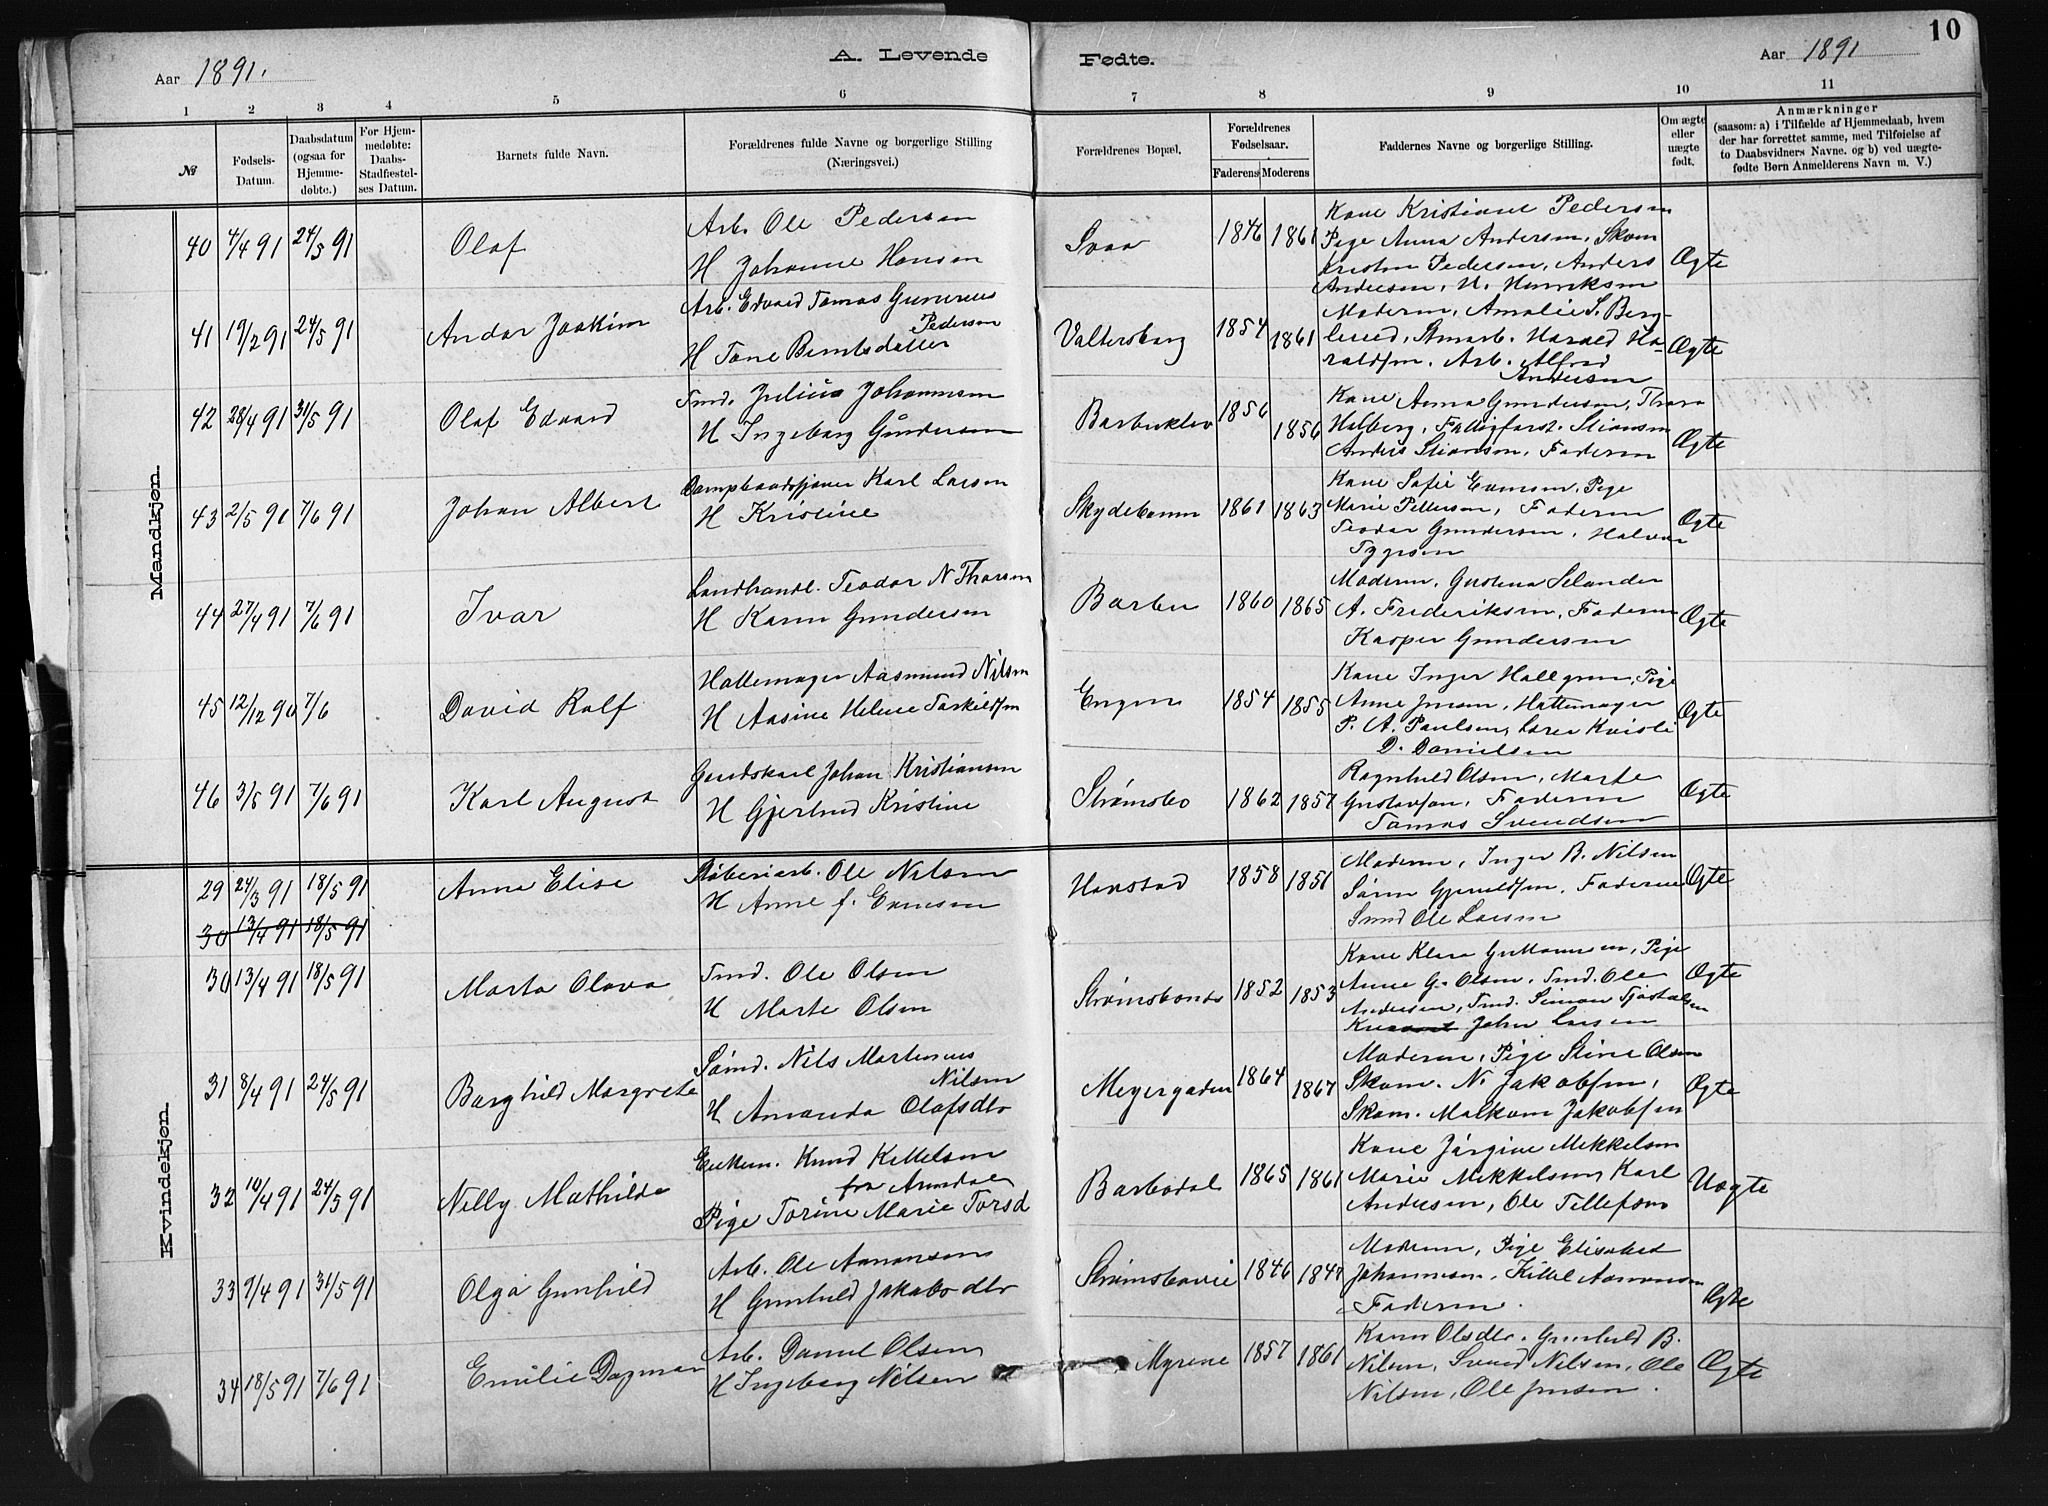 10
Aar 1891.
A. Levende Fødte.
Aar 1891
1 2 3 4 5 6 7 8 9 10 11
№
Fødsels-Datum.
Daabsdatum (ogsaa for Hjemme-døbte.)
For Hjem-medøbte: Daabs-Stadfæstel-ses Datum.
Barnets fulde Navn.
Forældrenes fulde Navne og borgerlige Stilling (Næringsvei.)
Forældrenes Bopæl.
Forældrenes Fødselsaar.
Faderens Moderens
Faddernes Navne og borgerlige Stilling.
Om ægte eller uægte født.
Anmærkninger
(saasom: a) i Tilfælde af Hjemmedaab, hvem der har forrettet samme, med Tilføielse af to Daabsvidners Navne. og b) ved uægte-fødte Børn Anmelderens Navn m. V.)
Mandkjøn.
40 4/4 91 24/5 91 Olaf
Arb. Ole Pedersen
H Johanne Hansen
Svaa 1846 1861
Kone Kristiane Pedersen
Pige Anna Andersen, Skom
Kristen Pedersen, Anders
Andersen, H. Henriksen
Ægte
41 19/2 91 24/5 91 Andor Joakim
Arb. Edvard Tomas Gunerius
Pedersen
H Tone Berntsdatter
Valtersborg 1854 1861
Moderen, Amalie S. Berg-
lund, Stenarb. Harald Ha-
raldsen, Arb. Alfred
Andersen
Ægte
42 28/4 91 31/5 91 Olaf Edvard
Tmd. Julius Johannesen
H Ingeborg Gundersen
Barbuklev 1856 1856
Kone Anna Gundersen, Thora
Halberg, Stiansen
Anders Stiansen, Faderen
Ægte
43 2/5 91 7/6 91 Johan Albert
Karl Larsen
H Kristine
Skydebanen 1861 1863
Kone Sofie Evensen, Pige
Marie Pettersen, Faderen
Teodor Gundersen, Halvor
Ægte
44 27/4 91 7/6 91 Ivar
Landhandl. Teodor N Thorsen
H Karen Gundersen
Barbu 1860 1865
Moderen, Gustava Selander
A. Frederiksen, Faderen
Kasper Gundersen
Ægte
45 12/12 90 7/6 David Rolf
Hattemager Aasmund Nilsen
H Aasine Helene Torkildsen
Engene 1854 1855
Kone Inger Hallgren, Pige
Anne Jensen, Hattemager
P. A. Paulsen, Lars Kvisli
D. Danielsen
Ægte
46 3/5 91 7/6 91 Karl August
Gaardskarl Johan Kristiansen
H Gjertrud Kristine
Strømsbo 1862 1857
Ragnhild Olsen, Marte
Gustavsen, Faderen
Tomas Svendsen
Ægte
Kvindekjøn.
29 24/3 91 18/5 91 Anna Elise
Støberiarb. Ole Nilsen
H Anne f. Evensen
Harstad 1858 1851
Moderen, Inger B. Nilsen
Søren Gjeruldsen, Faderen
Smed Ole Larsen
Ægte
30 13/4 91 18/5 91
30 13/4 91 18/5 91 Marta Olava
Tmd. Ole Olsen
H Marte Olsen
Strømsbo 1852 1853
Kone Klara Guttormsen, Pige
Anne G. Olsen, Tmd. Ole
Andersen, Tmd. Simon Tjøstolsen
John Larsen
Ægte
31 8/4 91 24/5 91 Borghild Margrete
Sømd. Nils Martenius
Nilsen
H Amanda Olafsdtr
Meyergaden 1864 1867
Moderen, Pige Stine Olsen
Skom. N. Jakobsen,
Skom. Malkom Jakobsen
Ægte
32 10/4 91 24/5 91 Nelly Mathilde
Enkem. Knud Kittelsen
fra Arendal
Pige Torine Marie Torsd
Barbodal 1865 1861
Kone Jørgine Mikkelsen
Marie Mikkelsen, Karl
Andersen, Ole Tellefsen
Uægte
33 9/4 91 31/5 91 Olga Gunhild
Arb. Ole Aanonsen
H Gunhild Jakobsdtr
Strømsbovei 1846 1847
Moderen, Pige Elisabed
Johannesen, Kittel Aanonsen
Faderen.
Ægte
34 18/5 91 7/6 91 Emilie Dagmar
Arb. Daniel Olsen
H Ingeborg Nilsen
Myrene 1857 1861
Karen Olsdtr. Gunhild B.
Nilsen, Svend Nilsen, Ole
Nilsen, Ole Jensen.
Ægte